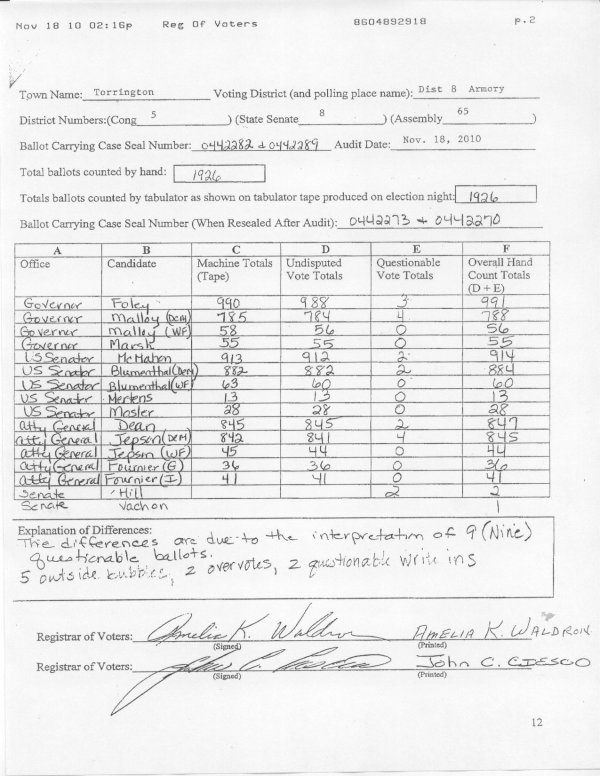 Nov 18 10 02:16p Reg Of Voters 8604892918 p.2
Town Name: Torrington Voting District (and polling place name): Dist 8 Armory
District Numbers:(Cong 5 ) (State Senate 8 ) (Assembly 65 )
Ballot Carrying Case Seal Number: 0442282 & 0442289 Audit Date: Nov. 18, 2010
Total ballots counted by hand: 1926
Totals ballots counted by tabulator as shown on tabulator tape produced on election night: 1926
Ballot Carrying Case Seal Number (When Resealed After Audit): 0442273 & 0442270
A B C D E F
Office Candidate Machine Totals Undisputed Questionable Overall Hand
(Tape) Vote Totals Vote Totals Count Totals
(D + E)
Governor Foley 990 988 3 991
Governor Malloy (DEM) 785 784 4 788
Governor Malley (WF) 58 56 0 56
Governor Marsh 55 55 0 55
US Senator McMahon 913 912 2 914
US Senator Blumenthal (Dem) 882 882 2 884
US Senator Blumenthal (WF) 63 60 0 60
US Senator Mertens 13 13 0 13
US Senator Mosler 28 28 0 28
Atty General Dean 845 845 2 847
Atty General Jepsen (DEM) 842 841 4 845
Atty General Jepsen (WF) 45 44 0 44
Atty General Fournier (G) 36 36 0 36
Atty General Fournier (I) 41 41 0 41
Senate Hill 2 2
Senate Vachon 1
Explanation of Differences:
The differences are due to the interpretation of 9 (Nine)
questionable ballots.
5 outside bubbles, 2 overvotes, 2 questionable write ins
Registrar of Voters: Amelia K. Waldron AMELIA K. WALDRON
(Signed) (Printed)
Registrar of Voters: John C.
(Signed) (Printed)
12